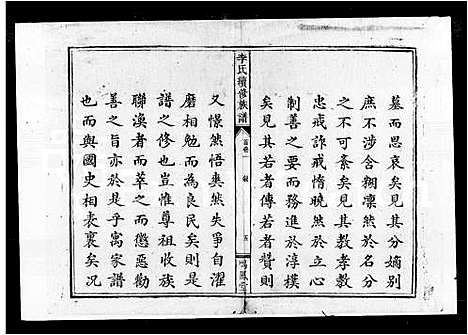 墓而思哀矣見其分嫡别
庶不涉含糊凜然於名分
之不可紊矣見其教孝教
忠戒詐戒惰曉然於善俗
制善之要而務進於淳樸
矣見其若者傳若者贊則
李氏續修族譜
首卷一
五
鳴鳳堂
又憬然悟奭然失爭自濯
磨相勉而為良民矣則是
譜之修也豈惟尊祖收族
聯渙者而萃之而懲惡勸
善之旨亦於是乎寓家譜
也而與國史相表裏矣况